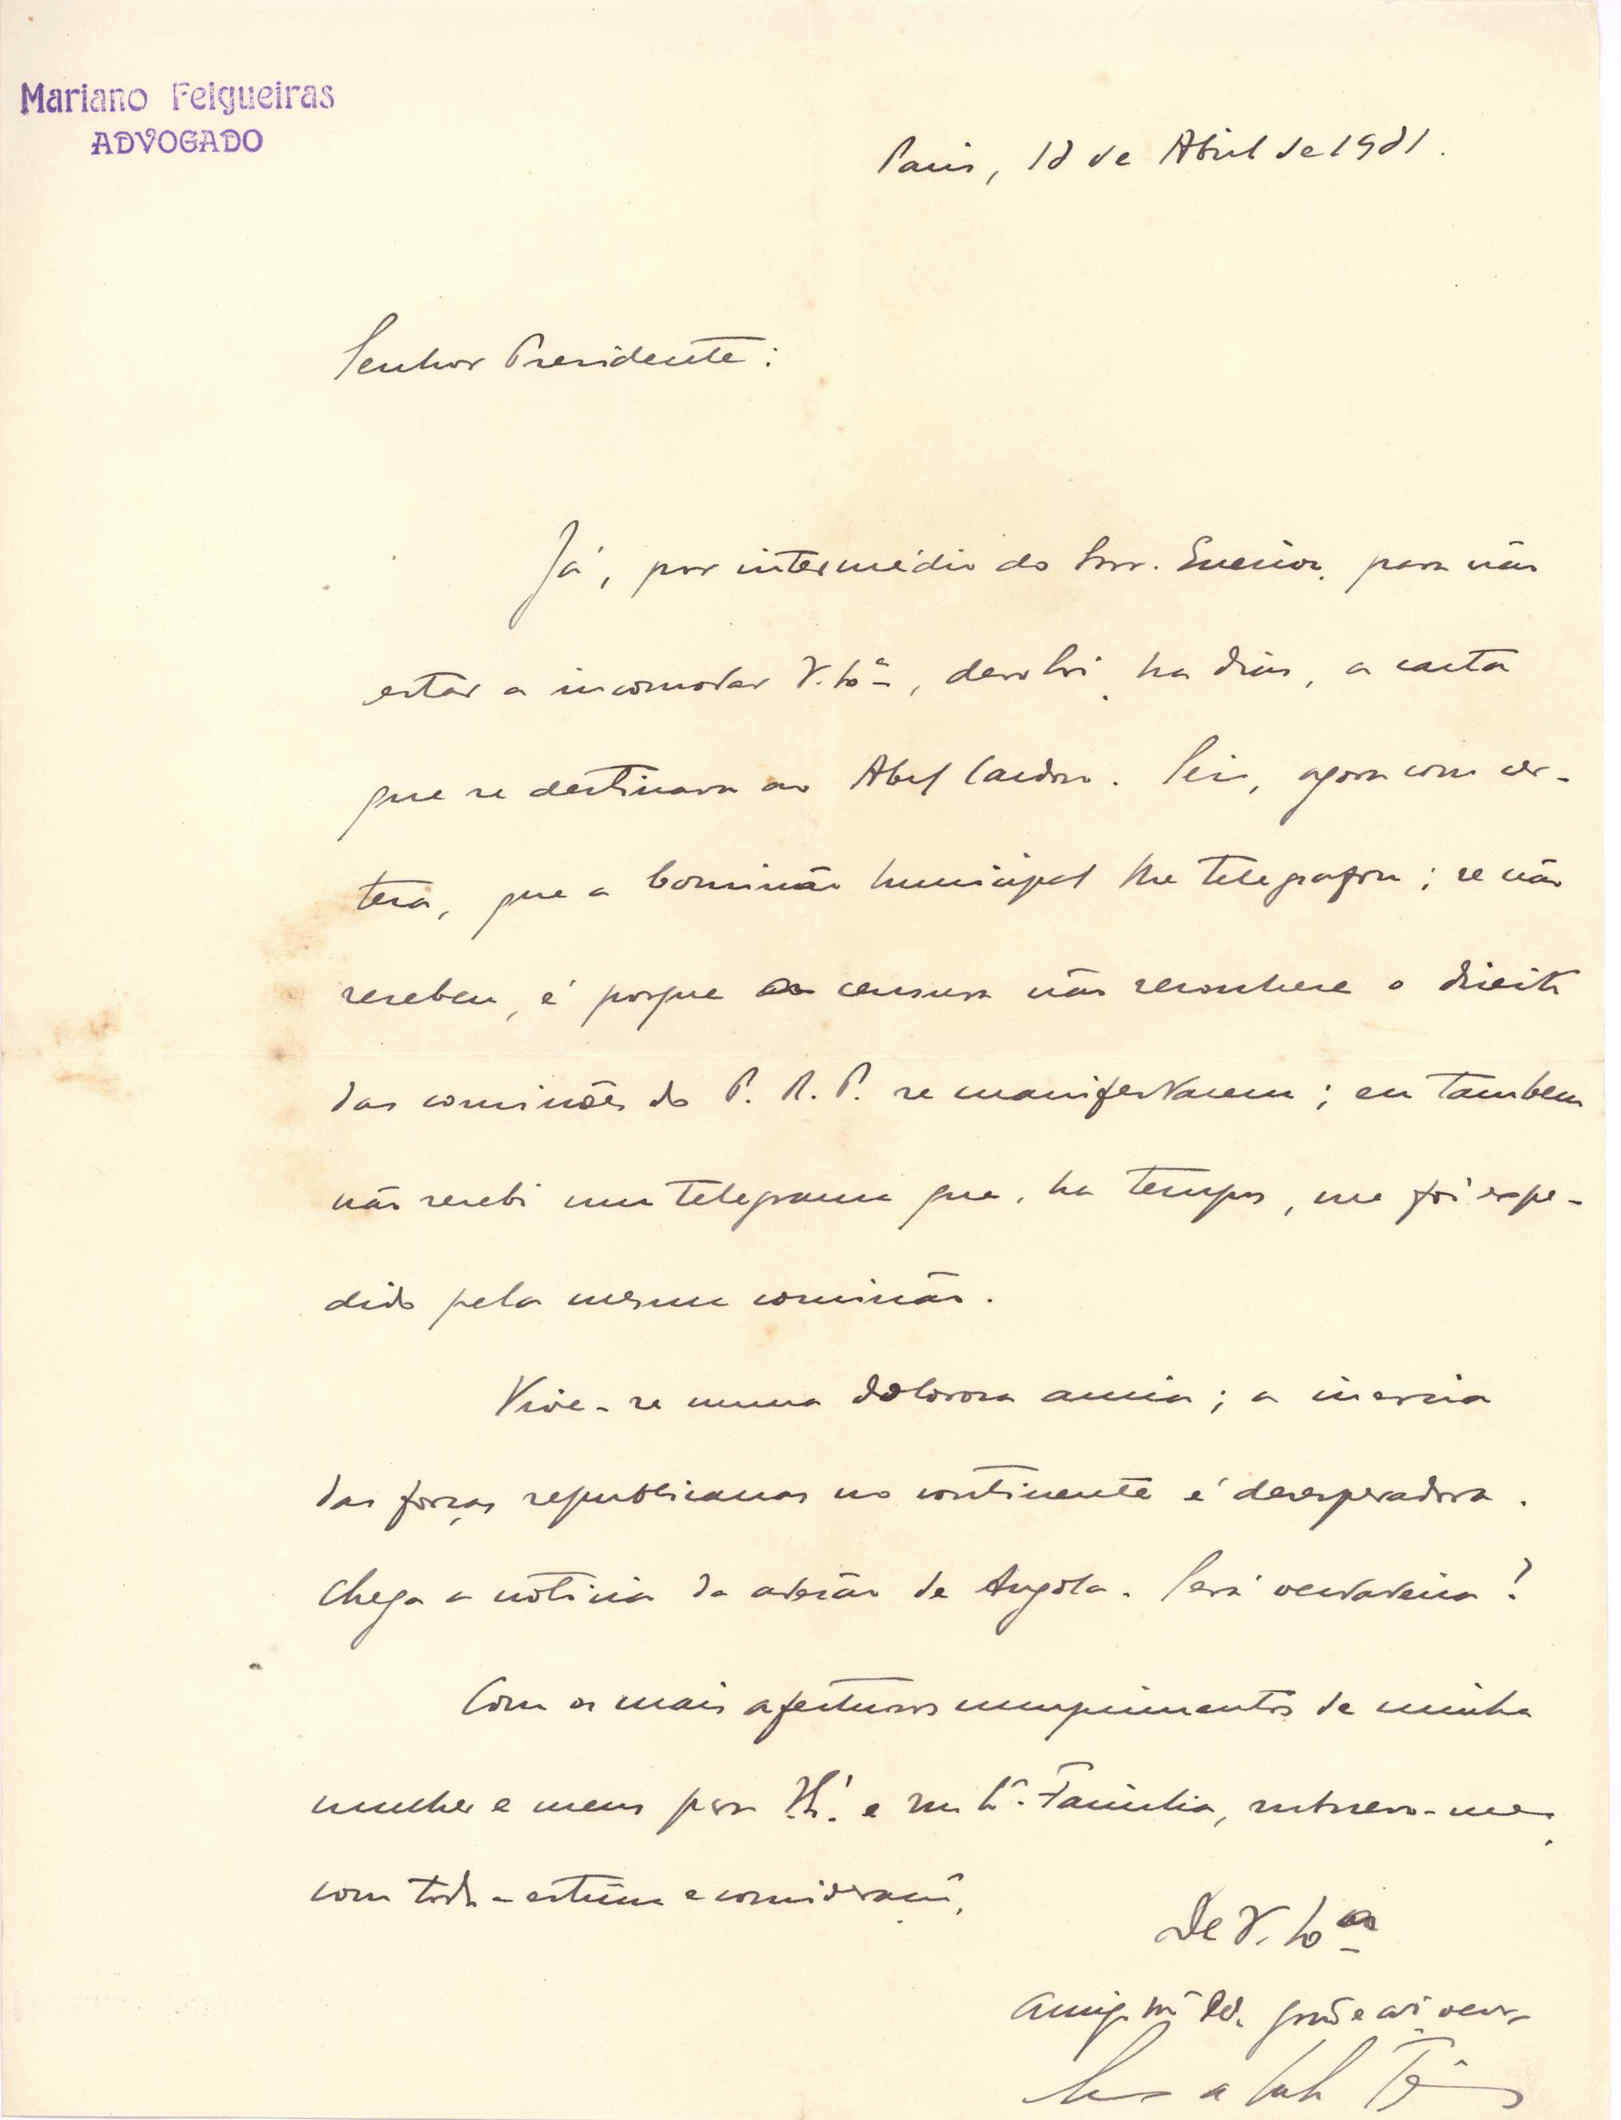 Mariano Felgueiras
ADVOGADO
Paris, 18 de Abril de 1931.
Senhor Presidente:
Já, por intermédio do Snr. para não
estar a incomodar V. Exª, devolvi, ha dias, a carta
que se destinava ao Abel Cardoso. Sei, agora com cer-
teza, que a Comissão Municipal lhe telegrafou; se não
recebeu, é porque a censura não reconhece o direito
das comissões do P. R. P. se manifestarem; eu tambem
não recebi um telegrama que, ha tempos, me foi expe-
dido pela mesma comissão.
Vive-se numa dolorosa ancia; a inercia
das forças republicanas no continente é desesperadora.
Chega a noticia da adesão de Angola. Será verdadeira?
Com os mais afectuosos cumprimentos de minha
mulher e meus para e Familia, subscrevo-me,
com toda a estima e consideração,
De V. Exª